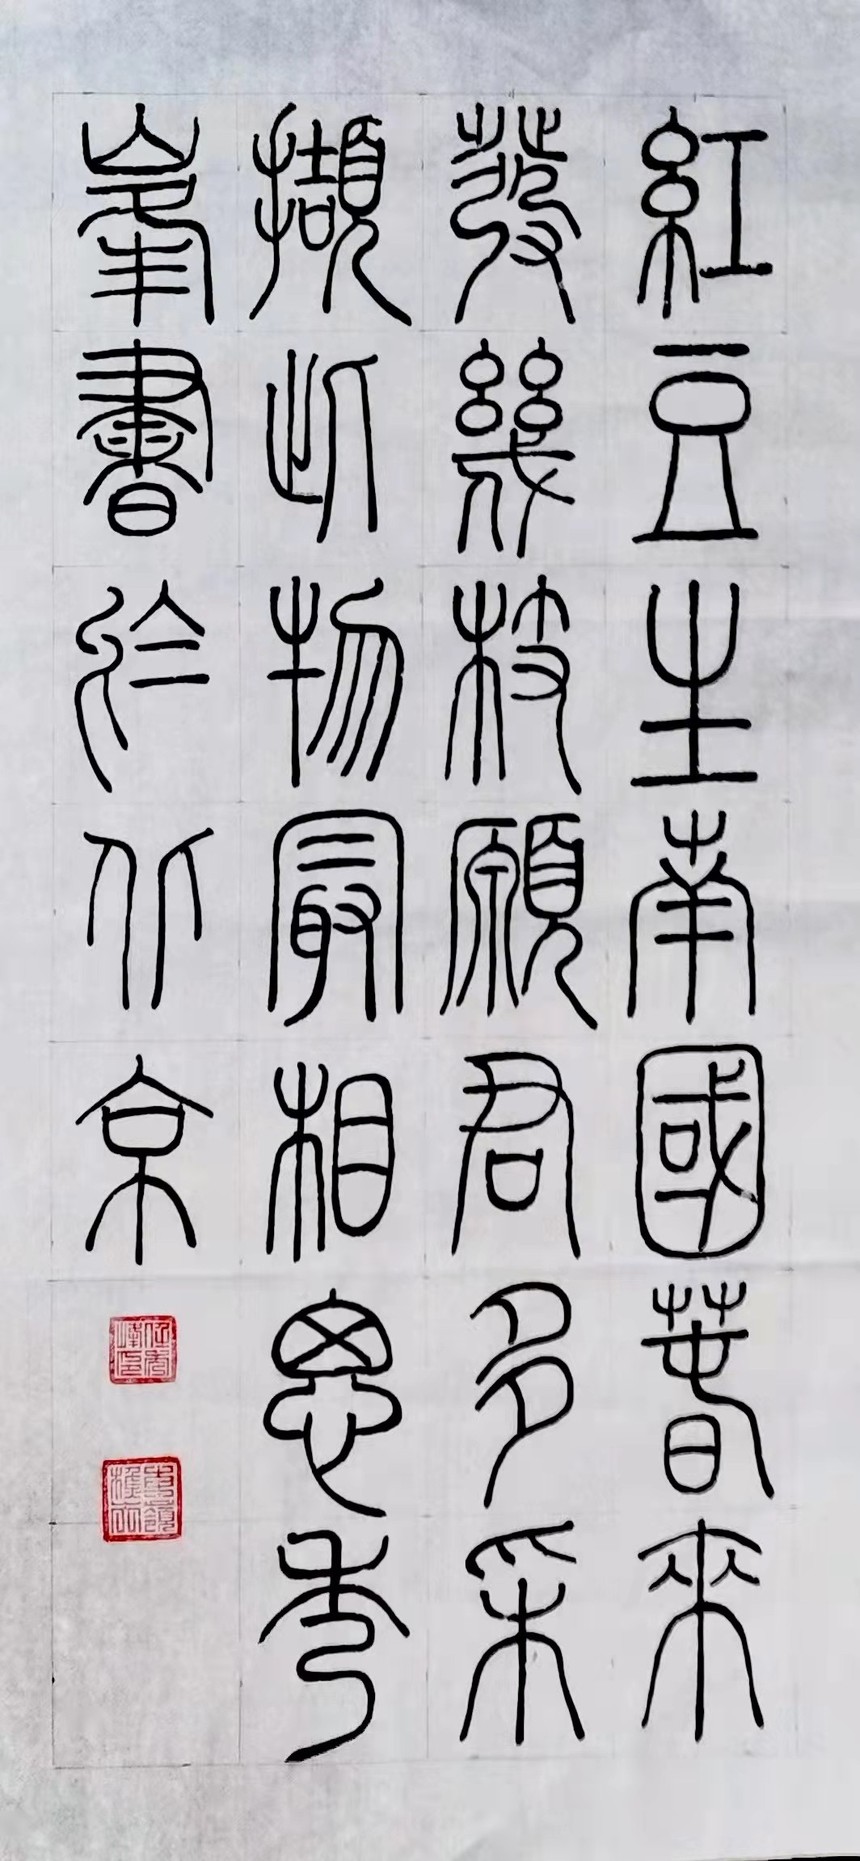 紅豆生南國春來
發幾枝願君多采
擷此物最相思秀
峯書於北京